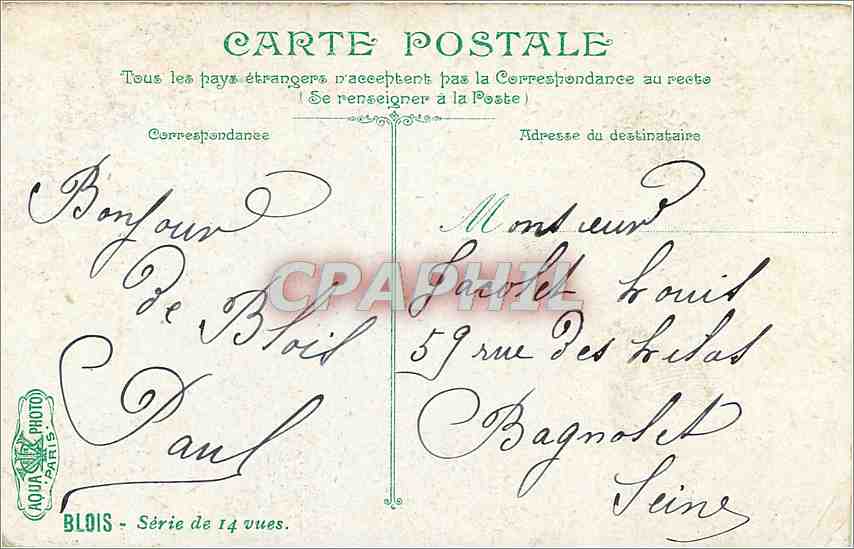 CARTE POSTALE
Tous les pays étrangers n'acceptent pas la Correspondance au recto
(Se renseigner à la Poste)
Correspondance
Adresse du destinataire
Bonjour
de Blois
Paul
Monsieur
Jacolet Louis
59 rue des Lilas
Bagnolet
Seine
CPAPHIL
AQUA PHOTO
PARIS
BLOIS - Série de 14 vues.